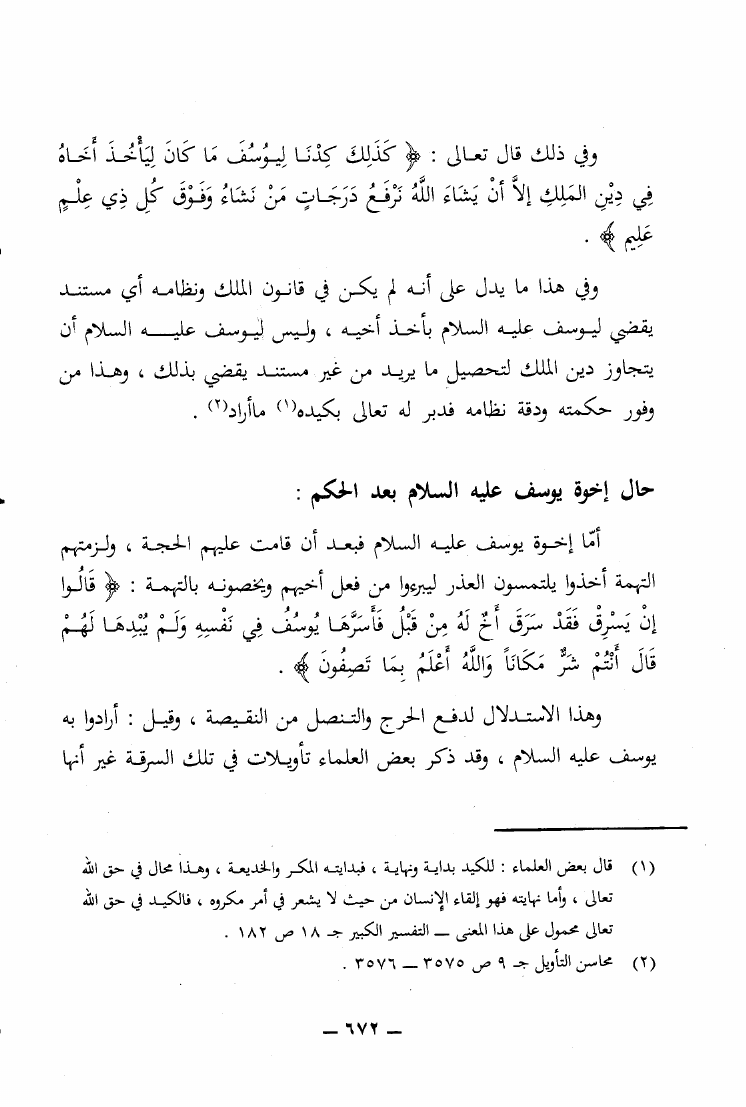 وفي ذلك قال تعالى : ﴿ كَذَلِكَ كِدْنَا لِيُوسُفَ مَا كَانَ لِيَأْخُذَ أَخَاهُ
فِي دِيْنِ المَلِكِ إلاَّ أَنْ يَشَاءَ اللَّهُ نَرْفَعُ دَرَجَاتٍ مَنْ نَشَاءُ وَفَوْقَ كُلِ ذِي عِلْمٍ
عَلِيم ﴾ .
وفي هذا ما يدل على أنه لم يكن في قانون الملك ونظامه أي مستند
يقضي ليوسف عليه السلام بأخذ أخيه ، وليس ليوسف عليه السلام أن
يتجاوز دين الملك لتحصيل ما يريد من غير مستند يقضي بذلك ، وهذا من
وفور حكمته ودقة نظامه فدبر له تعالى بكيده(١) ماأراد(٢) .
حال إخوة يوسف عليه السلام بعد الحكم :
أمّا إخوة يوسف عليه السلام فبعد أن قامت عليهم الحجة ، ولزمتهم
التهمة أخذوا يلتمسون العذر ليبرءوا من فعل أخيهم ويخصونه بالتهمة : ﴿ قَالُوا
إنْ يَسْرِقْ فَقَدْ سَرَقَ أَخٌ لَهُ مِنْ قَبْلُ فَأَسَرَّهَا يُوسُفُ فِي نَفْسِهِ وَلَمْ يُبْدِهَا لَهُمْ
قَالَ أَنْتُمْ شَرٌّ مَكَانَاً وَاللَّهُ أَعْلَمُ بِمَا تَصِفُونَ ﴾ .
وهذا الاستدلال لدفع الحرج والتنصل من النقيصة ، وقيل : أرادوا به
يوسف عليه السلام ، وقد ذكر بعض العلماء تأويلات في تلك السرقة غير أنها
(١) قال بعض العلماء : للكيد بداية ونهاية ، فبدايته المكر والخديعة ، وهذا محال في حق الله
تعالى ، وأما نهايته فهو إلقاء الإنسان من حيث لا يشعر في أمر مكروه ، فالكيد في حق الله
تعالى محمول على هذا المعنى ــ التفسير الكبير جـ ١٨ ص ١٨٢ .
(٢) محاسن التأويل جـ ٩ ص ٣٥٧٥ ــ ٣٥٧٦ .
ــ ٦٧٢ ــ